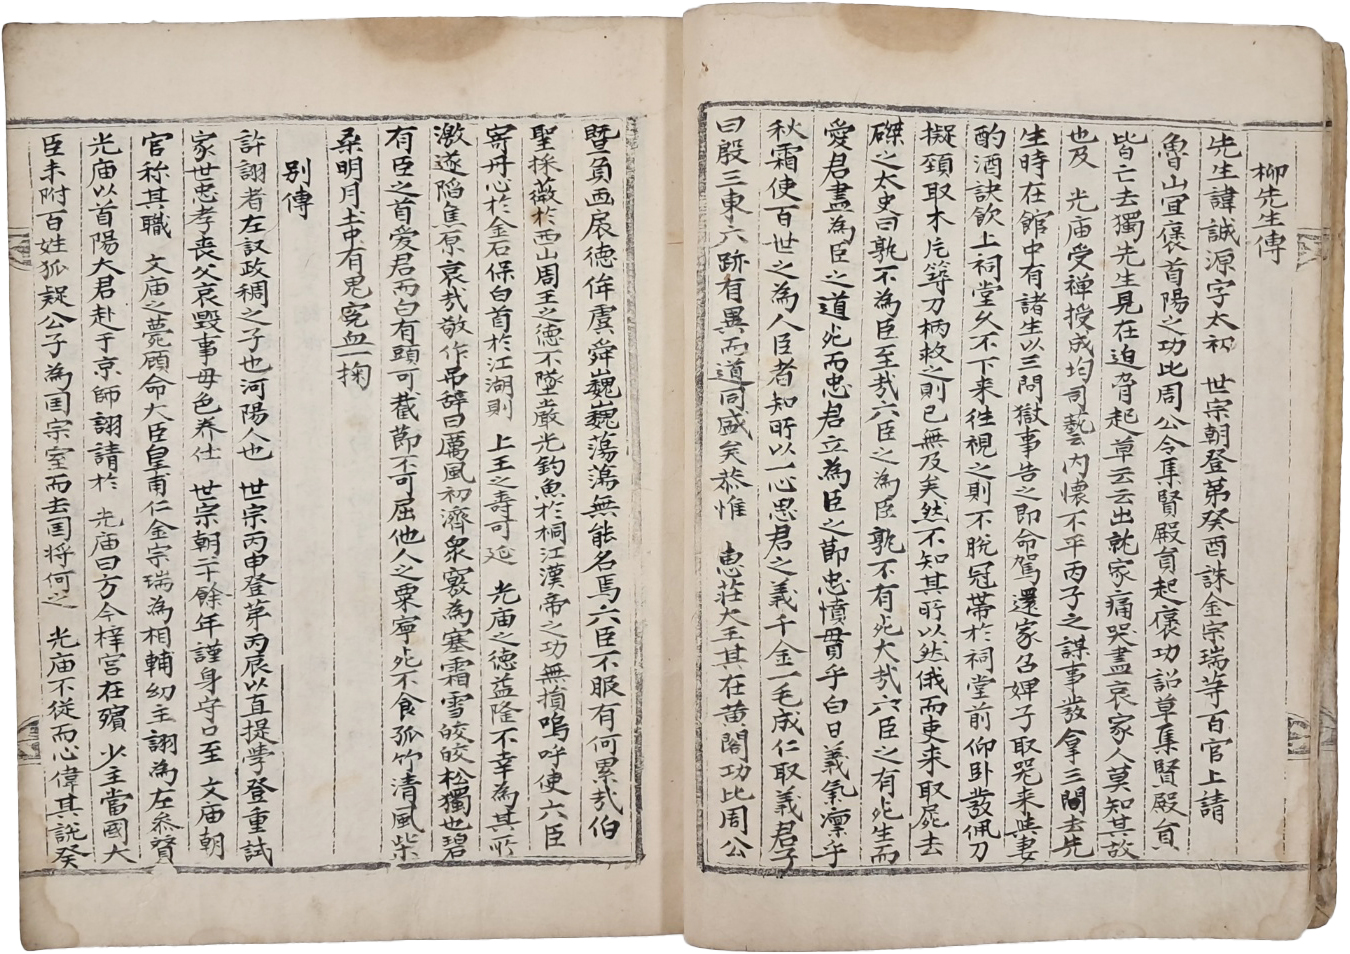 柳先生傳
先生諱誠源字太初　世宗朝登第癸酉誅金宗瑞等百官上請
魯山宜褒首陽之功比周公令集賢殿員起褒功詔草集賢殿員
皆亡去獨先生見在迫脅起草云云出就家痛哭盡哀家人莫知其故
也及　光庙受禅授成均司藝云內懷不平丙子之謀事發拿三問去先
生時在館中有諸生以三問獄事告之即命駕還家召婢子取咒来與妻
酌酒訣飲上祠堂久不下来徃視之則不脫冠帶於祠堂前仰卧發佩刀
擬頚取木片䓁刀柄救之則已無及矣然不知其所以然俄而吏来取屍去
磔之太史曰孰不為臣至㦲六臣之為臣孰不有死大㦲六臣之有死生而
愛君盡為臣之道死而忠君立為臣之節忠憤毋貫乎白日義氣凜乎
秋霜使百世之為人臣者知所以一心思君之義千金一毛成仁取義君子
曰殷三東六跡有異而道同盛矣恭惟　惠莊大王其在黄閣功比周公
暨負西扆德侔虞舜巍巍蕩蕩無能名焉六臣不服有何累㦲伯
聖採薇於西山周王之德不墜嚴光釣魚於桐江漢帝之功無損嗚呼使六臣
寄丹心於金石保白首於江湖則　上王之壽可延　光庙之德益隆不幸為其所
激遂陷焦原哀㦲敬作吊辞曰厲風初濟衆竅為塞霜雪皎皎松獨也碧
有臣之首愛君而白有頭可截節不可屈他人之粟寧死不食孤竹清風柴
桑明月土中有鬼冤血一掬
别傳
許詡者左議政稠之子也河陽人也　世宗丙申登第丙辰以直提學登重試
家世忠孝喪父哀毁事母色养仕　世宗朝干餘年謹身守口至　文庙朝
官称其職　文庙之薨顧命大臣皇甫仁金宗瑞為相輔幼主詡為左叅贊
光庙以首陽大君赴于京師詡請於　光庙曰方今梓宫在殯　少主當國大
臣未附百姓狐疑公子為国宗室而去国将何之　光庙不従而心偉其說癸